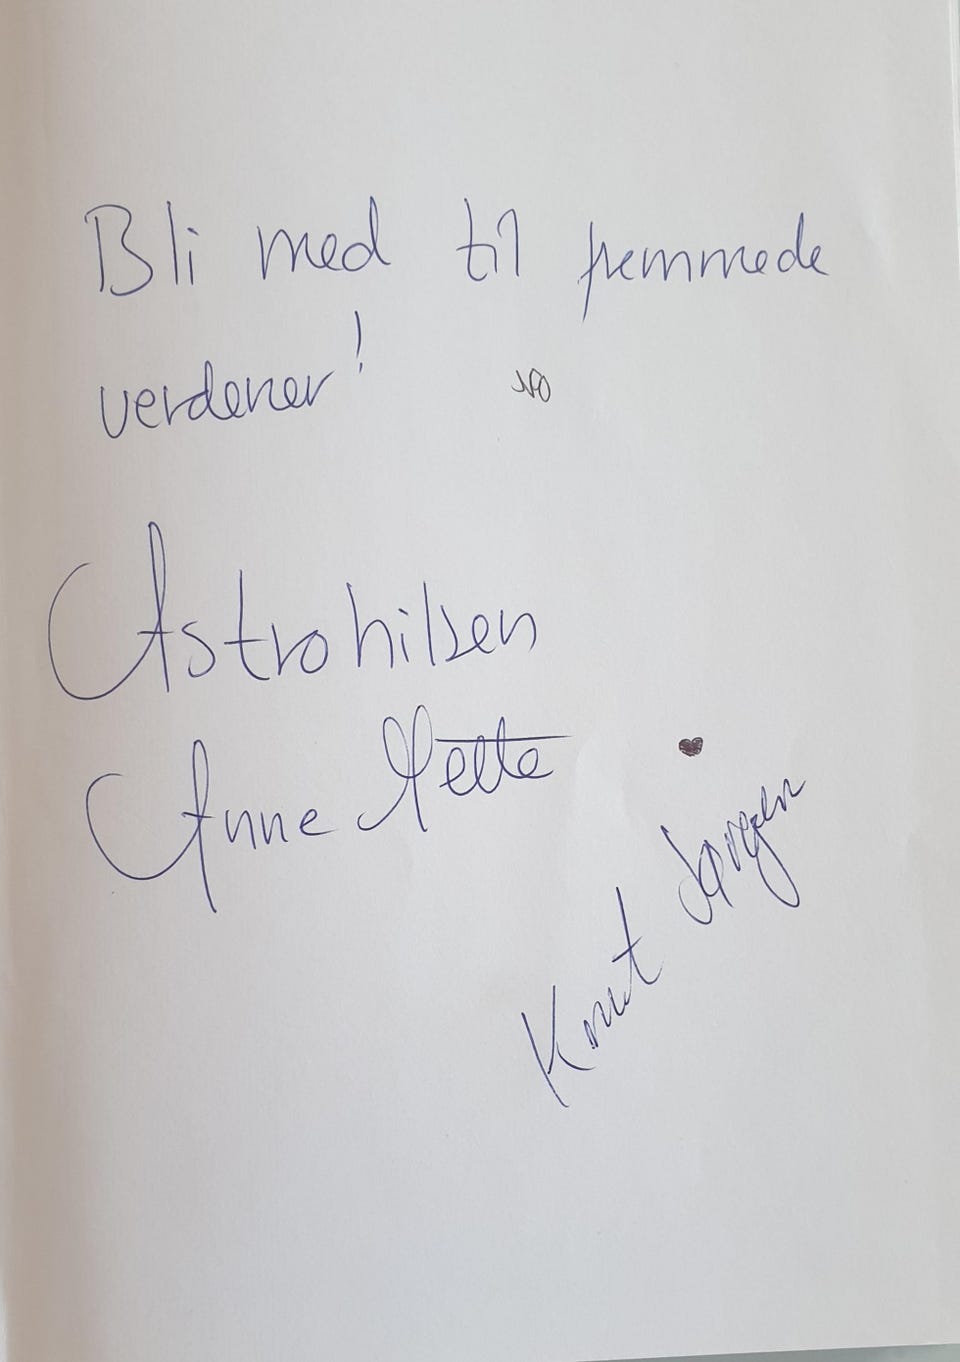 Bli med til fremmede
verdener!
Astrohilsen
Anne Mette
Knut Jørgen